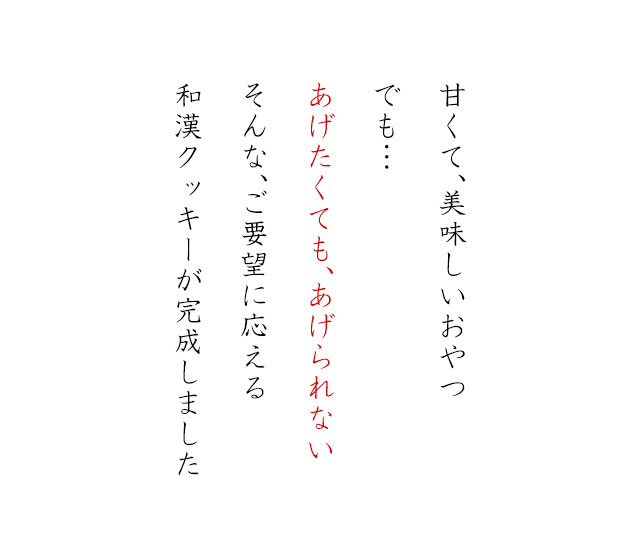 甘くて、美味しいおやつ
でも…
あげたくても、あげられない
そんな、ご要望に応える
和漢クッキーが完成しました